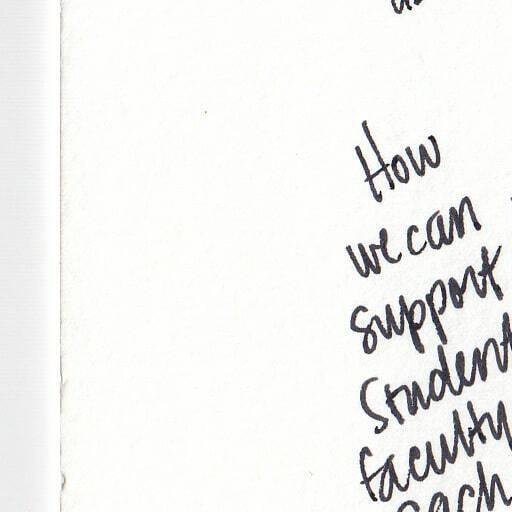 How
we can
support
Student
faculty
each